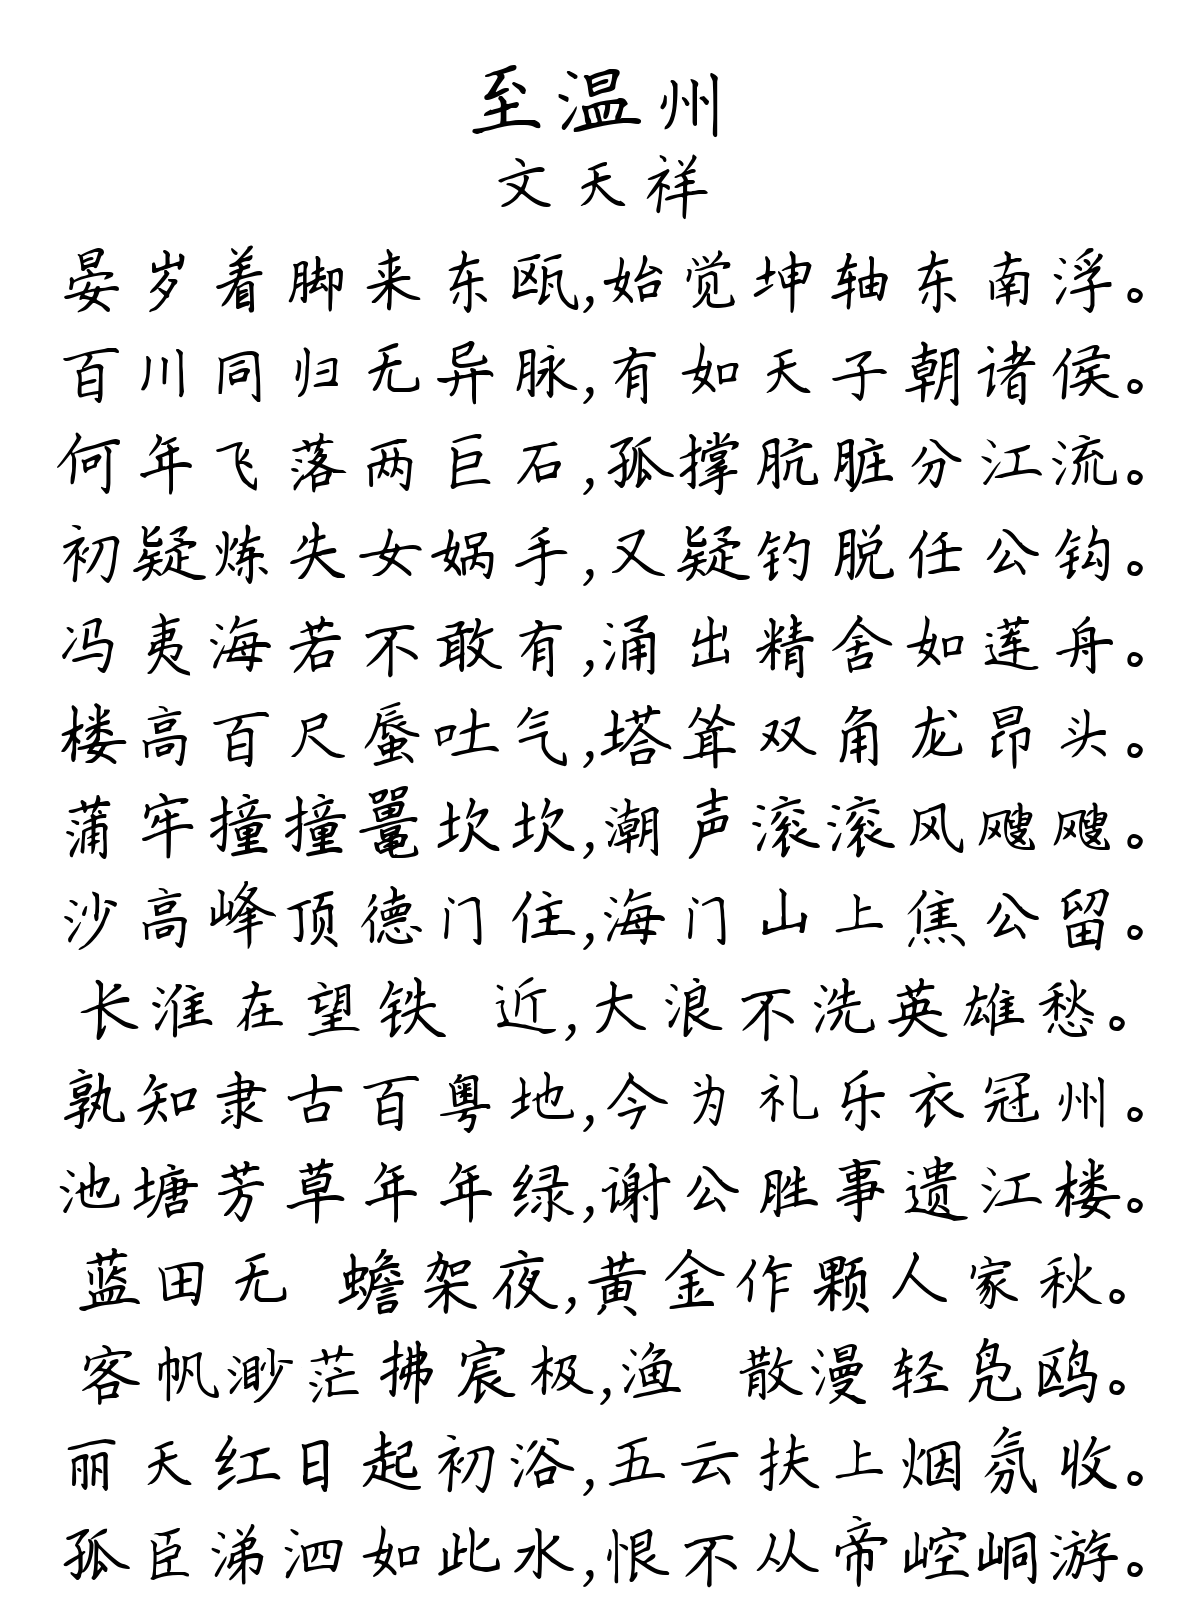 至温州
文天祥
晏岁着脚来东瓯,始觉坤轴东南浮。
百川同归无异脉,有如天子朝诸侯。
何年飞落两巨石,孤撑肮脏分江流。
初疑炼失女娲手,又疑钓脱任公钩。
冯夷海若不敢有,涌出精舍如莲舟。
楼高百尺蜃吐气,塔耸双角龙昂头。
蒲牢撞撞鼍坎坎,潮声滚滚风飕飕。
沙高峰顶德门住,海门山上焦公留。
长淮在望铁 近,大浪不洗英雄愁。
孰知隶古百粤地,今为礼乐衣冠州。
池塘芳草年年绿,谢公胜事遗江楼。
蓝田无 蟾架夜,黄金作颗人家秋。
客帆渺茫拂宸极,渔 散漫轻凫鸥。
丽天红日起初浴,五云扶上烟氛收。
孤臣涕泗如此水,恨不从帝崆峒游。